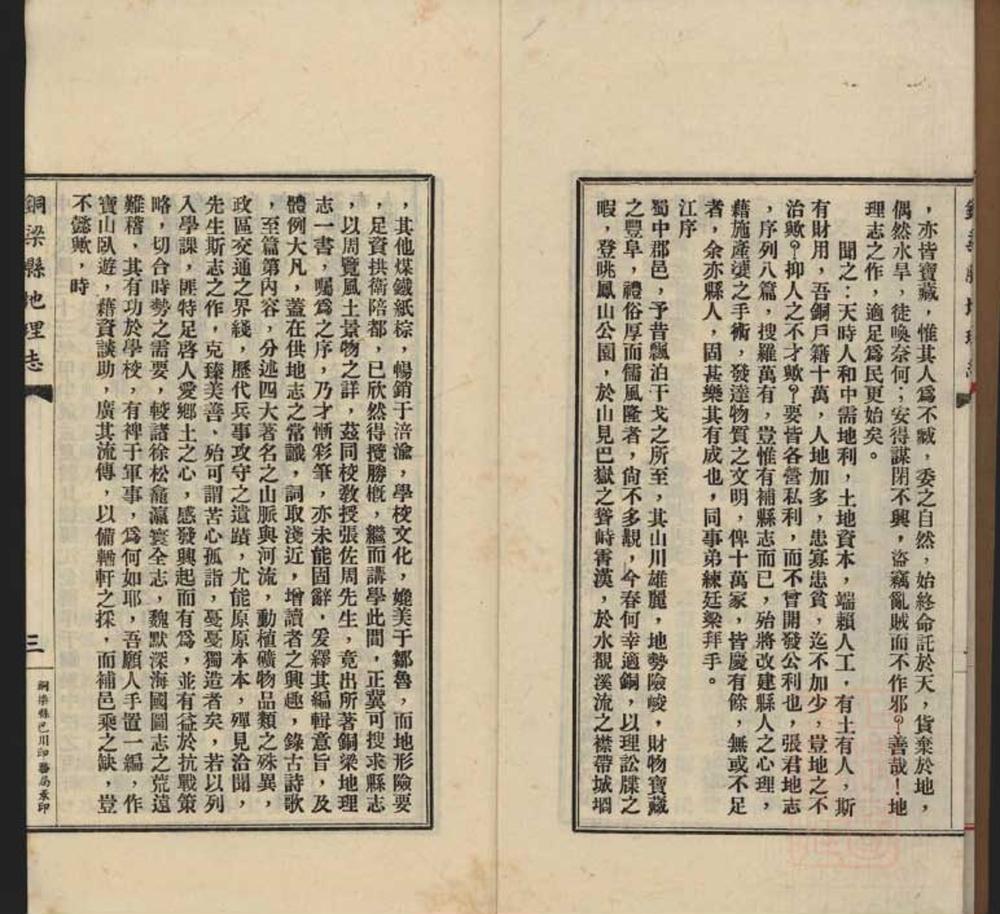 ，亦皆寶藏，惟其人爲不臧，委之自然，始終命託於天，貨棄於地，
偶然水旱，徒喚奈何；安得謀閉不興，盜竊亂賊而不作邪？善哉！地
理志之作，適足爲民更始矣。
聞之：天時人和中需地利，土地資本，端賴人工，有土有人，斯
有財用，吾銅戶籍十萬，人地加多，患寡患貧，迄不加少，豈地之不
治歟？抑人之不才歟？要皆各營私利，而不曾開發公利也，張君地志
，序列八篇，搜羅萬有，豈惟有補縣志而已，殆將改建縣人之心理，
藉施產漣之手術，發達物質之文明，俾十萬家，皆慶有餘，無或不足
者，余亦縣人，固甚樂其有成也，同事弟練廷梁拜手。
江序
蜀中郡邑，予昔飄泊干戈之所至，其山川雄麗，地勢險峻，財物寶藏
之豐阜，禮俗厚而儒風隆者，尙不多覯，今春何幸適銅，以理訟牒之
暇，登眺鳳山公園，於山見巴嶽之聳峙霄漢，於水觀溪流之襟帶城堌
，其他煤鐵紙棕，暢銷于涪渝，學校文化，媲美于鄒魯，而地形險要
，足資拱衛陪都，已欣然得攬勝槪，繼而講學此間，正冀可搜求縣志
，以周覽風土景物之詳，茲同校敎授張佐周先生，竟出所著銅梁地理
志一書，囑爲之序，乃才慚彩筆，亦未能固辭，爰繹其編輯意旨，及
體例大凡，蓋在供地志之常識，詞取淺近，增讀者之興趣，錄古詩歌
，至篇第內容，分述四大著名之山脈與河流，動植礦物品類之殊異，
政區交通之界綫，歷代兵事攻守之遺蹟，尤能原原本本，殫見洽聞，
先生斯志之作，克臻美善、殆可謂苦心孤詣，戛戛獨造者矣，若以列
入學課，匪特足啓人愛鄉土之心，感發興起而有爲，並有益於抗戰策
略，切合時勢之需要，較諸徐松龕瀛寰全志，魏默深海國圖志之荒遠
難稽，其有功於學校，有裨于軍事，爲何如耶，吾願人手置一編，作
寶山臥遊，藉資談助，廣其流傳，以備輶軒之採，而補邑乘之缺，豈
不懿歟，時
銅梁縣地理志
三
銅梁縣巴川印書局承印